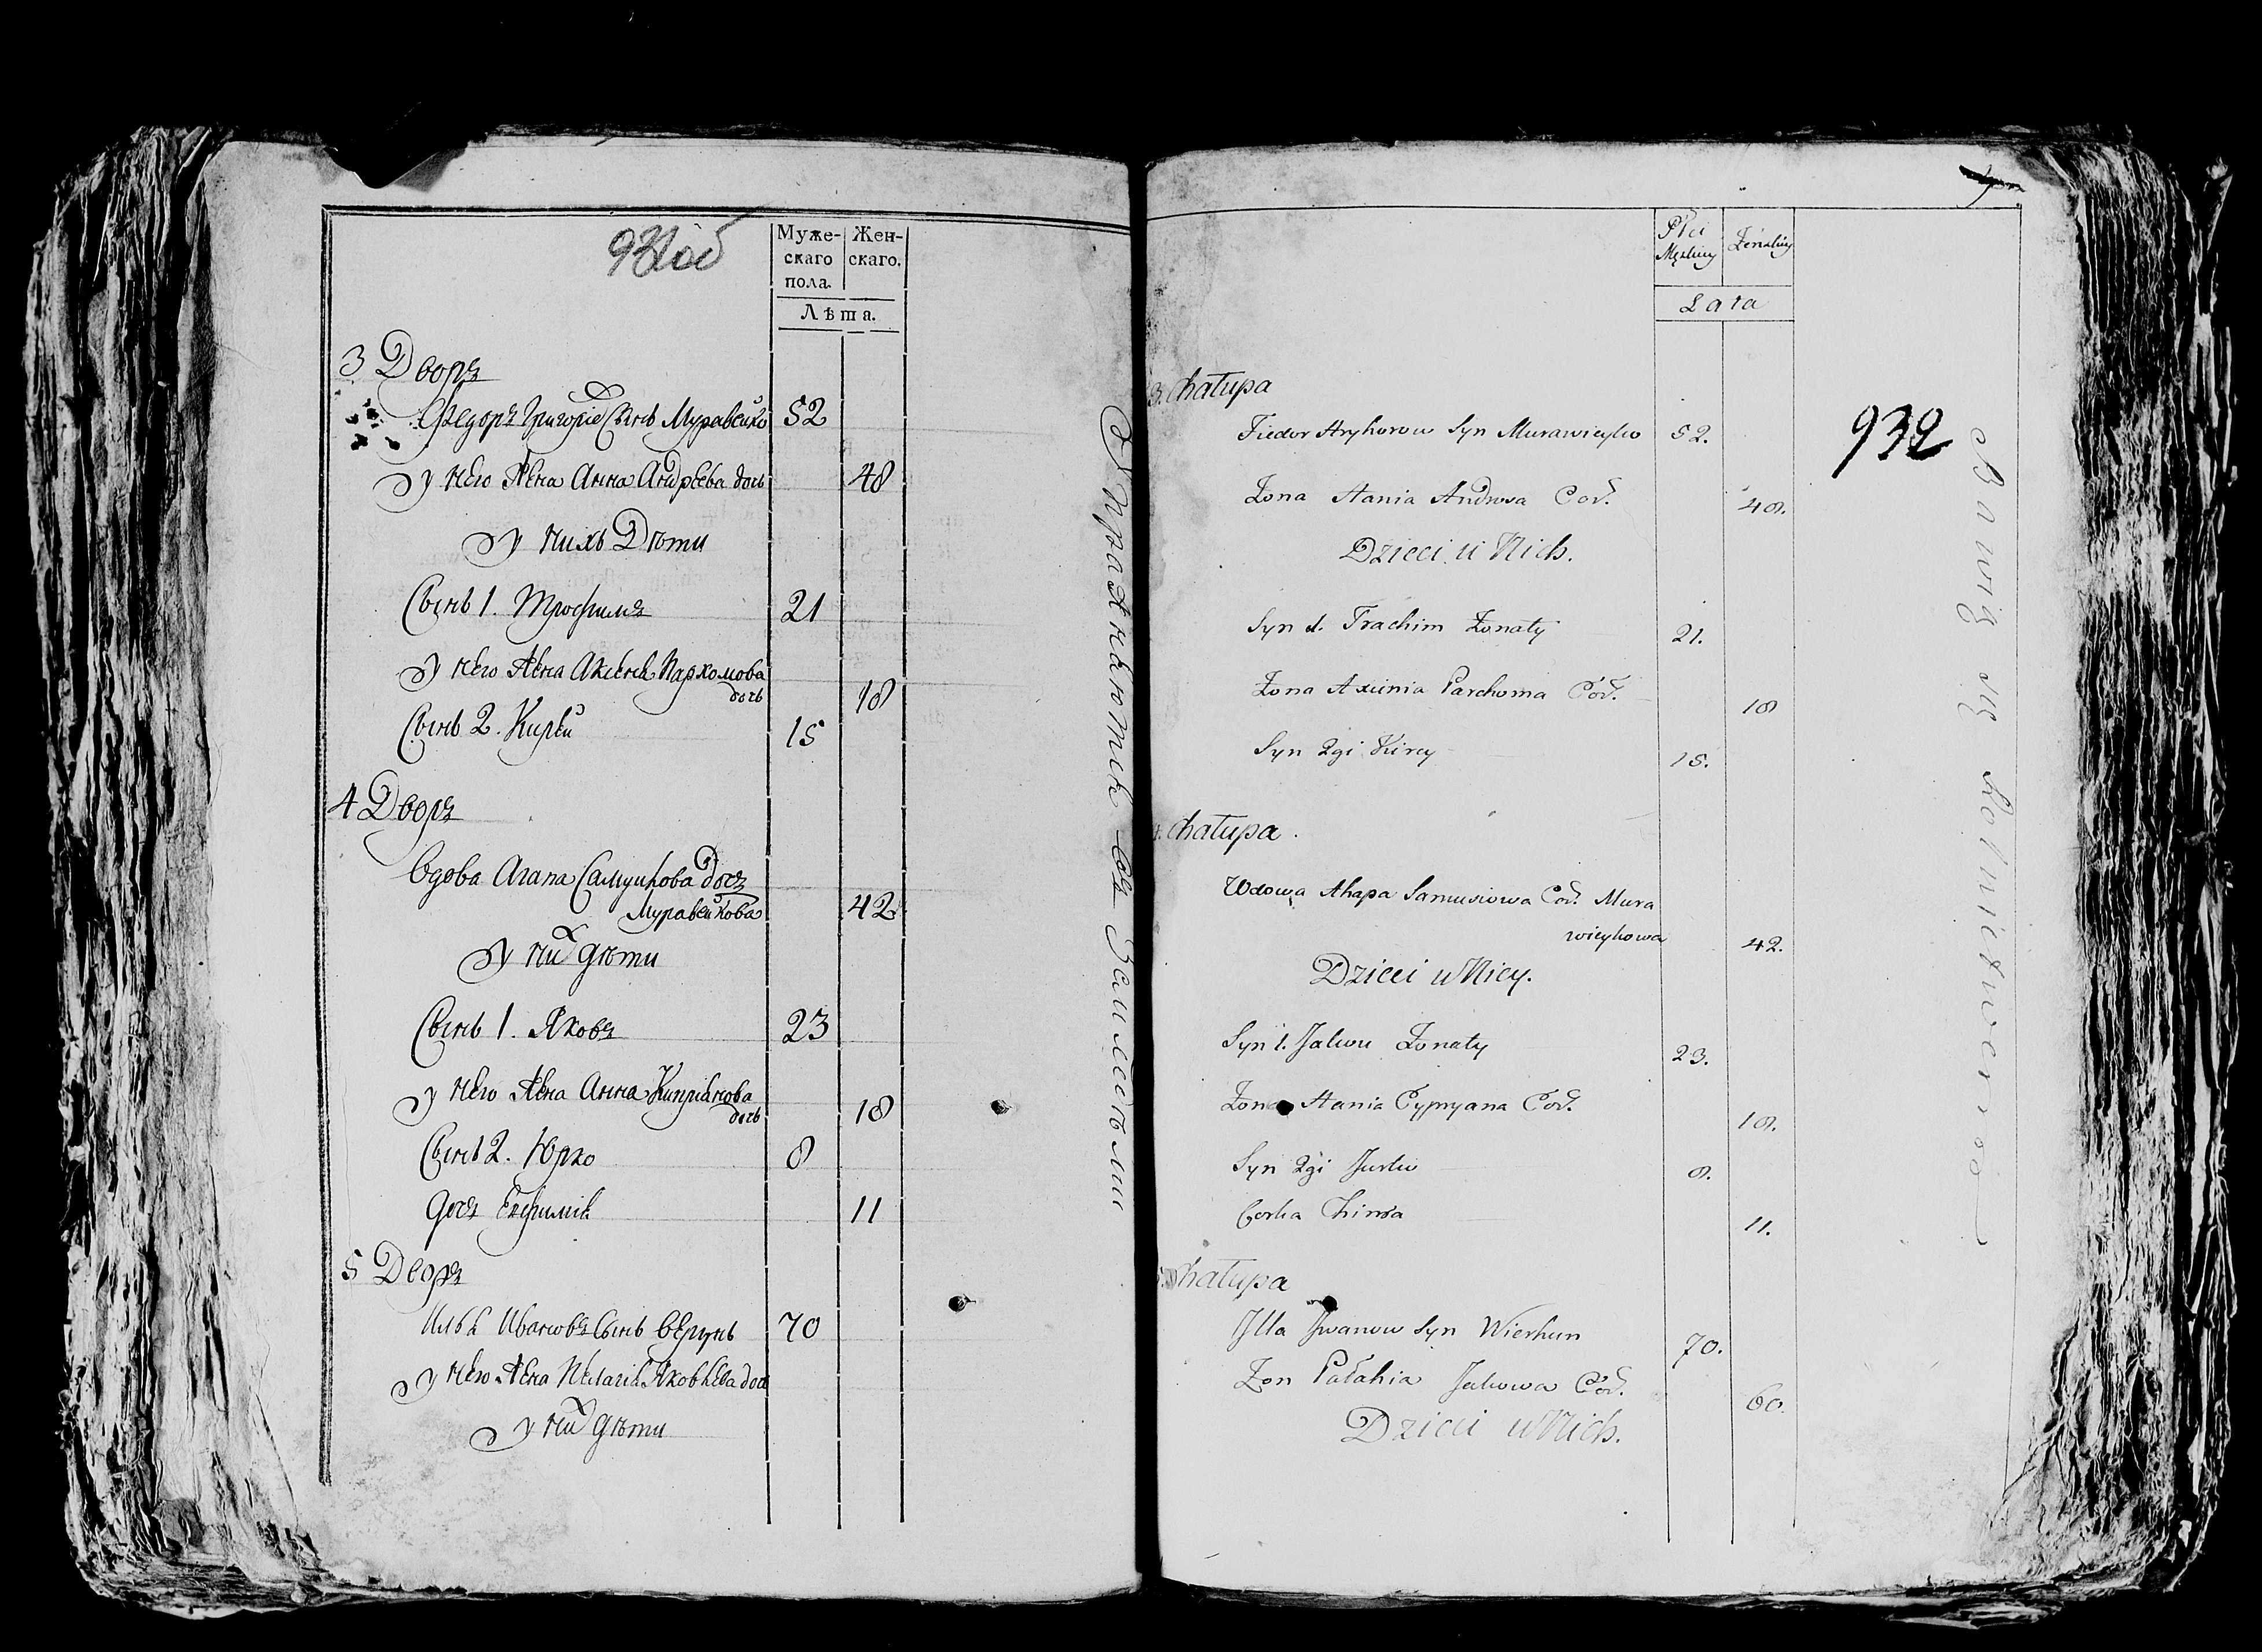 931об
Муже-
скаго
пола.
Жен-
скаго.
Лѣта.
3 Дворъ
Федоръ Григорїе Сынъ Муравейко 52
у него Жена Анна Андрѣева дочь 48
у нихъ Дѣти
Сынъ 1. Трофимъ 21
у него Жена Аксенія Пархомова
дочь 18
Сынъ 2. Кирѣй 15
4 Дворъ
Вдова Агапа Самуйлова дочь
Муравейкова 42
у них дѣти
Сынъ 1. Яковъ 23
у него Жена Анна Кипріянова
дочь 18
Сынъ 2. Юрко 8
дочь Евфимія 11
5 Дворъ
Илья Ивановъ Сынъ Вергунъ 70
у него Жена Пелагія Яковлева доч
у них дѣти
Упражняютця въ Земледѣліи
Płci
Męskiey
Żeńskiey
Lata
932
3. Chałupa
Fiedor Hryhorow Syn Murawieyko 52.
Żona Hania Androsa Cor. 48.
Dzieci u Nich.
Syn 1. Trachim Żonaty 21.
Żona Axienia Parchoma Cór. 18
Syn 2gi Kirey 15.
4. Chałupa.
Wdowa Ahapa Samusiowa Cor. Mura
wieykowa 42.
Dzieci u Niey.
Syn 1. Jakow Żonaty 23.
Żona Hania Cypryana Cor. 18.
Syn 2gi Jurko 8.
Corka Chimka 11.
5. Chałupa
Illa Iwanow Syn Wierhun 70.
Żon Pałahia Jakowa Cór. 60.
Dzieci u Nich.
Bawią się Rolnictwem